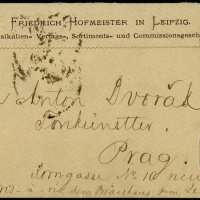 FRIEDRICH HOFMEISTER IN LEIPZIG.
sikalien- Verlags-, Sortiments- und Commissionsgesch
Anton Dvořák
Tonkünstler
Prag.
Korngasse No 10 neu
vis-à-vis dem Bräuhaus zum